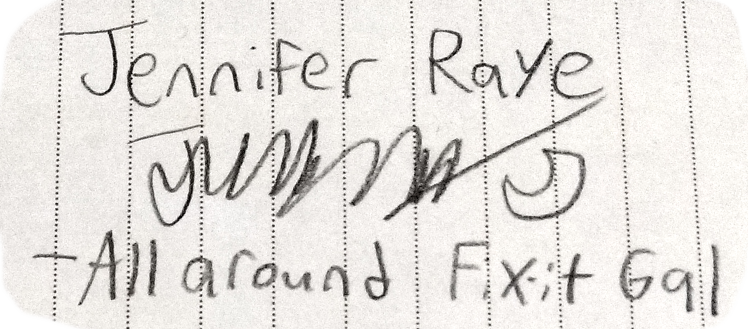 Jennifer Raye
-All around Fix-it Gal